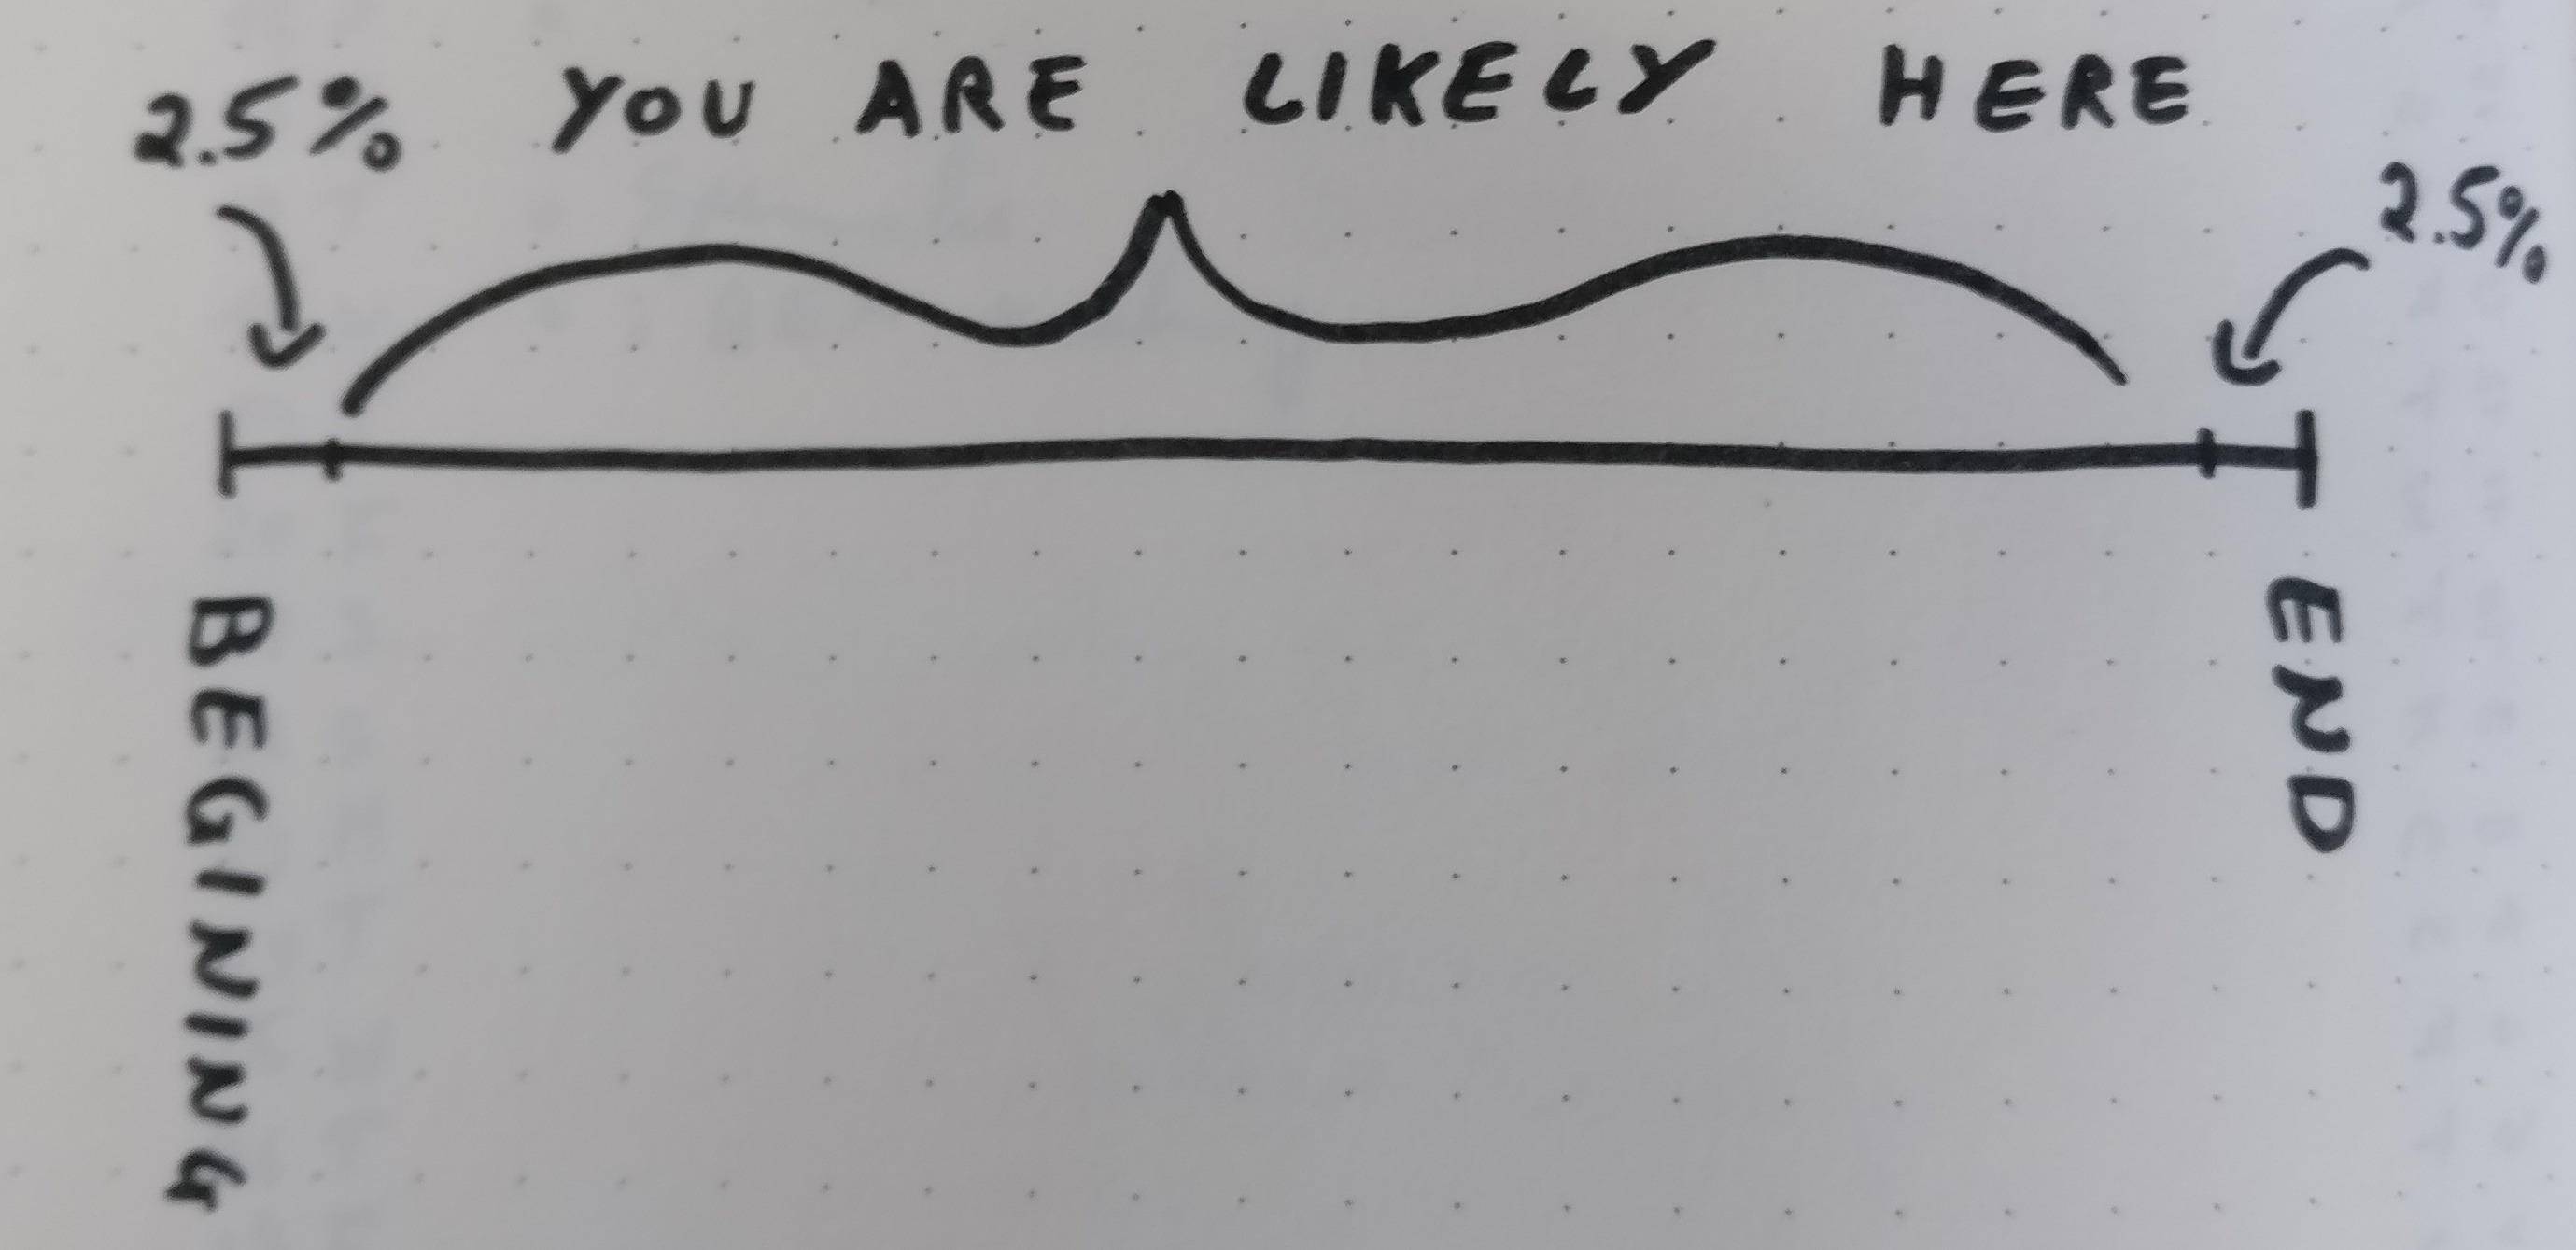 2.5%
YOU ARE LIKELY HERE
2.5%
BEGINING
END